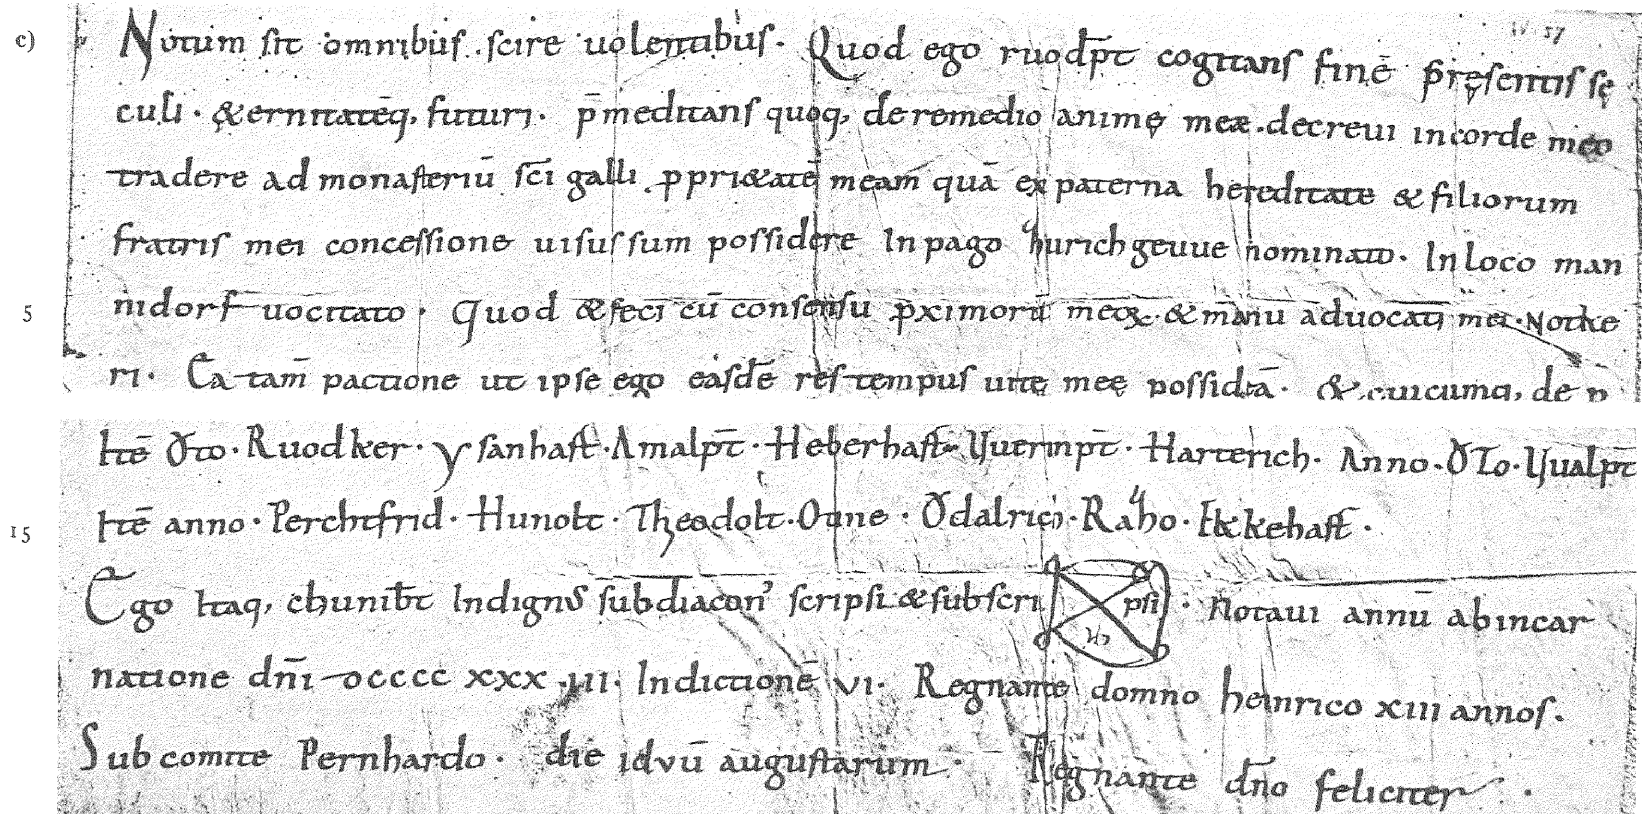 c) Notum sit omnibus . scire uolentibus . Quod ego ruodp̄t cogitans finē p̄sentis sę
culi . &ernitatēq, futuri . p̄meditans quoq, de remedio animę meæ . decreui in corde meo
tradere ad monasteriū sc̄i galli ppri&atē meam quā ex paterna hereditate & filiorum
fratris mei concessione uisus sum possidere In pago zurichgeuue nominato . In loco man
5 nidorf uocitato . Quod & feci cū consensu pximorū meoꝝ . & manu aduocati mei . Notke
ri . Ea tam̄ pactione ut ipse ego easdē res tempus uitę meę possideā . & cuicumq, de p
Itē Oto . Ruodker . ysanhast . Amalp̄t . Heberhast . Uuerinp̄t . Harterich . Anno . OTo . Uualp̄t
15 Itē anno . Perchtfrid . Hunolt . Theodolt . Otine . Odalrich . Razo . Ekkehast .
Ego Itaq, chunib̄t Indignus subdiacon' scripsi & subscri psi . Notaui annū ab incar
natione dn̄i occcc xxx . III . Indictionē VI . Regnante domno heinrico XIII annos .
Sub comite Pernhardo . die iduū augustarum . Regnante dn̄o feliciter .